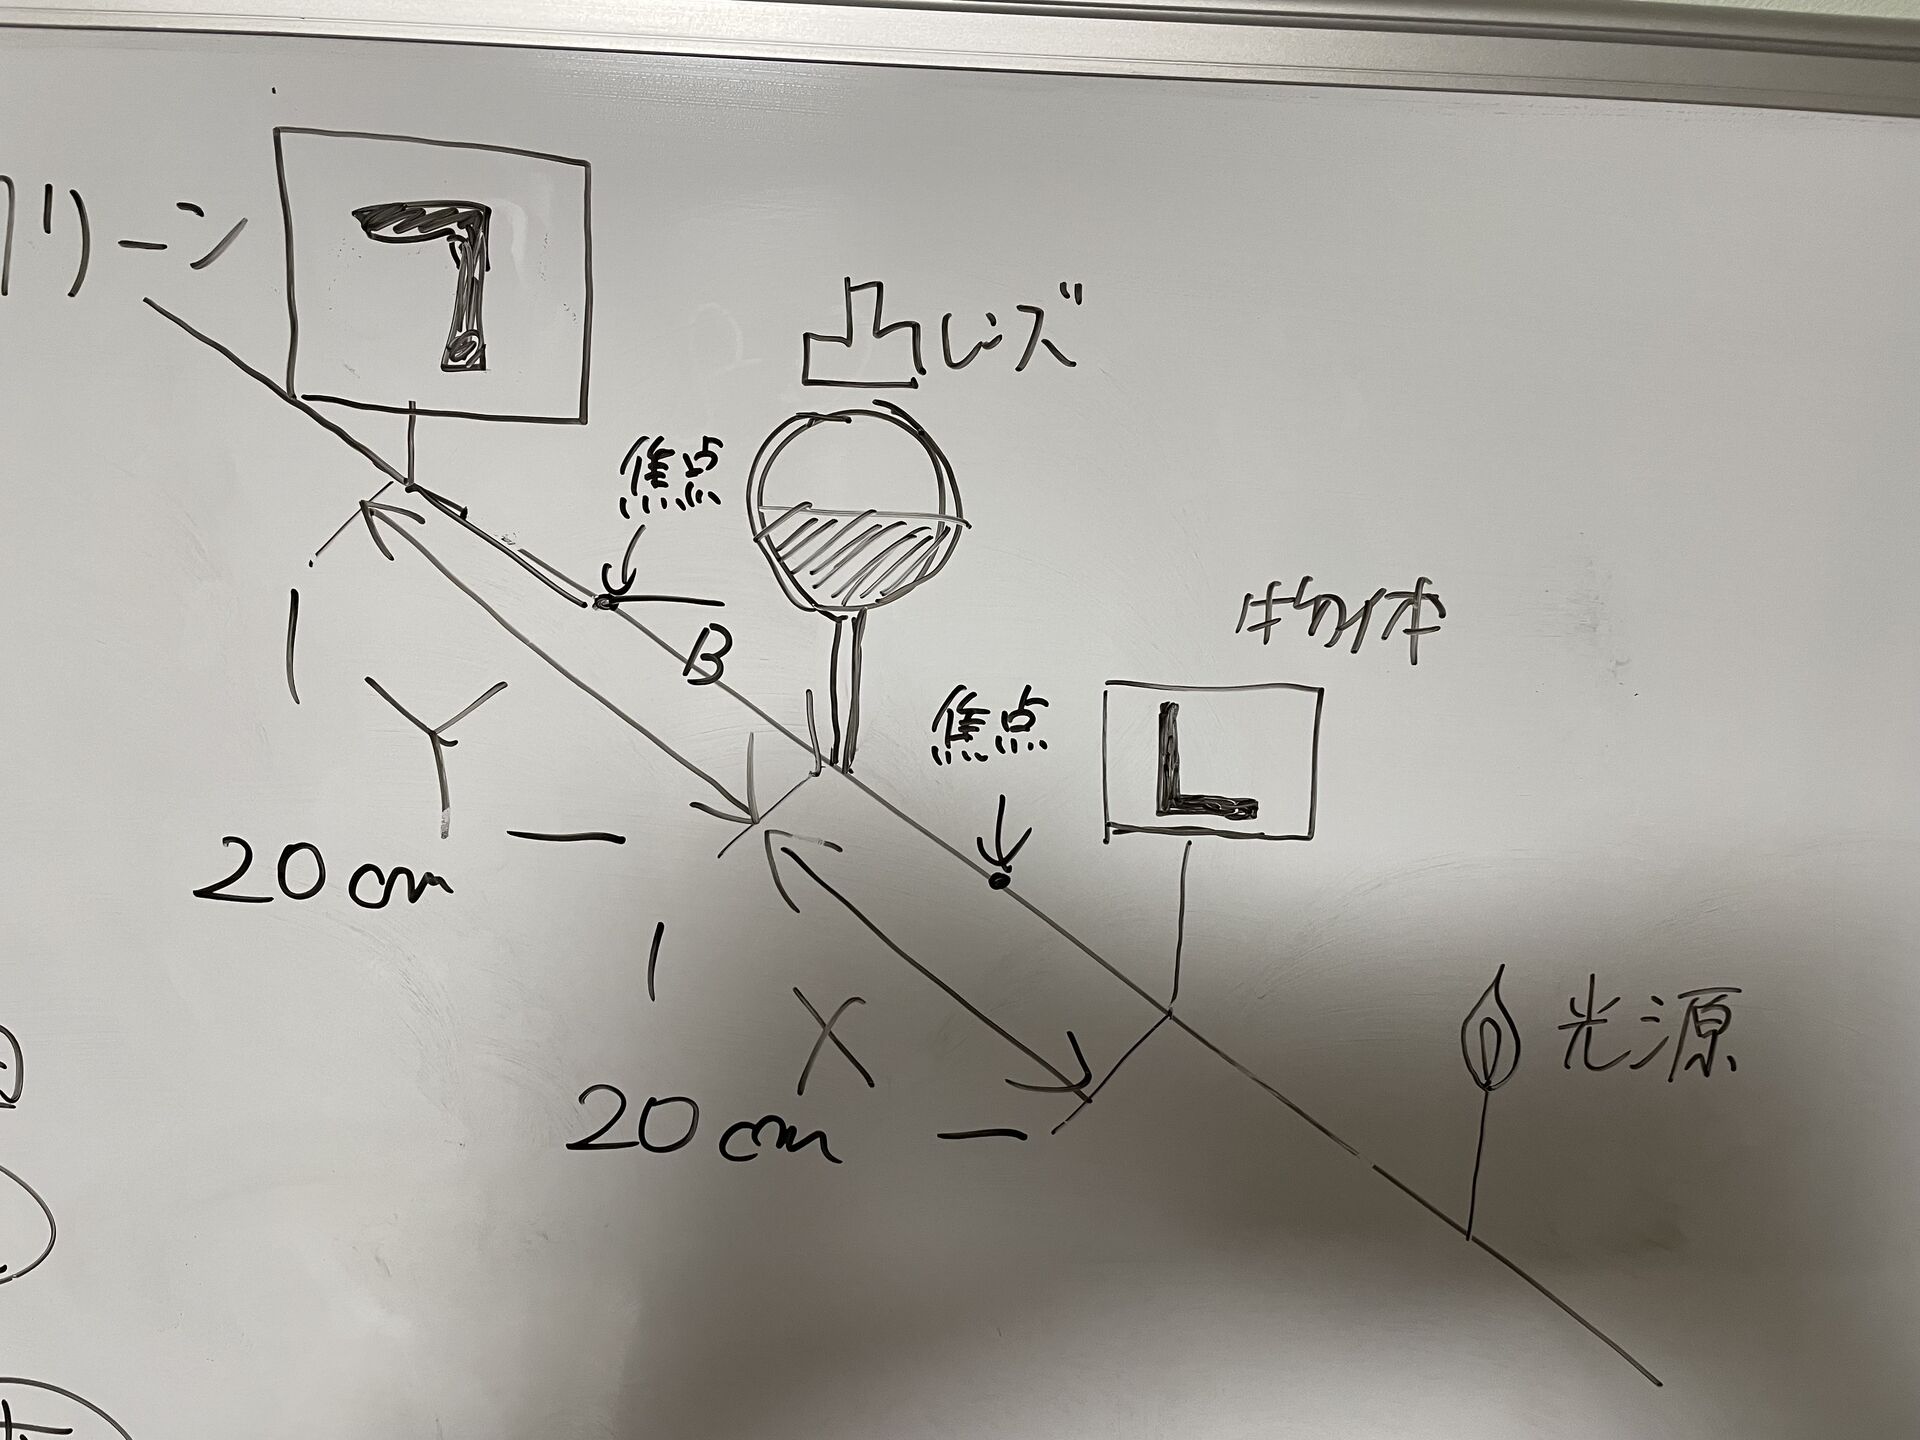 クリーン
凸レンズ
焦点
B
物体
L
焦点
Y
20cm
X
20cm
光源